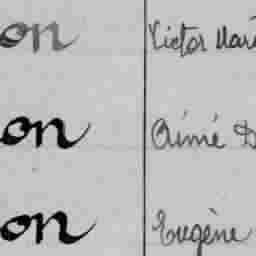 on Victor Mari
on Aimé D
on Eugène